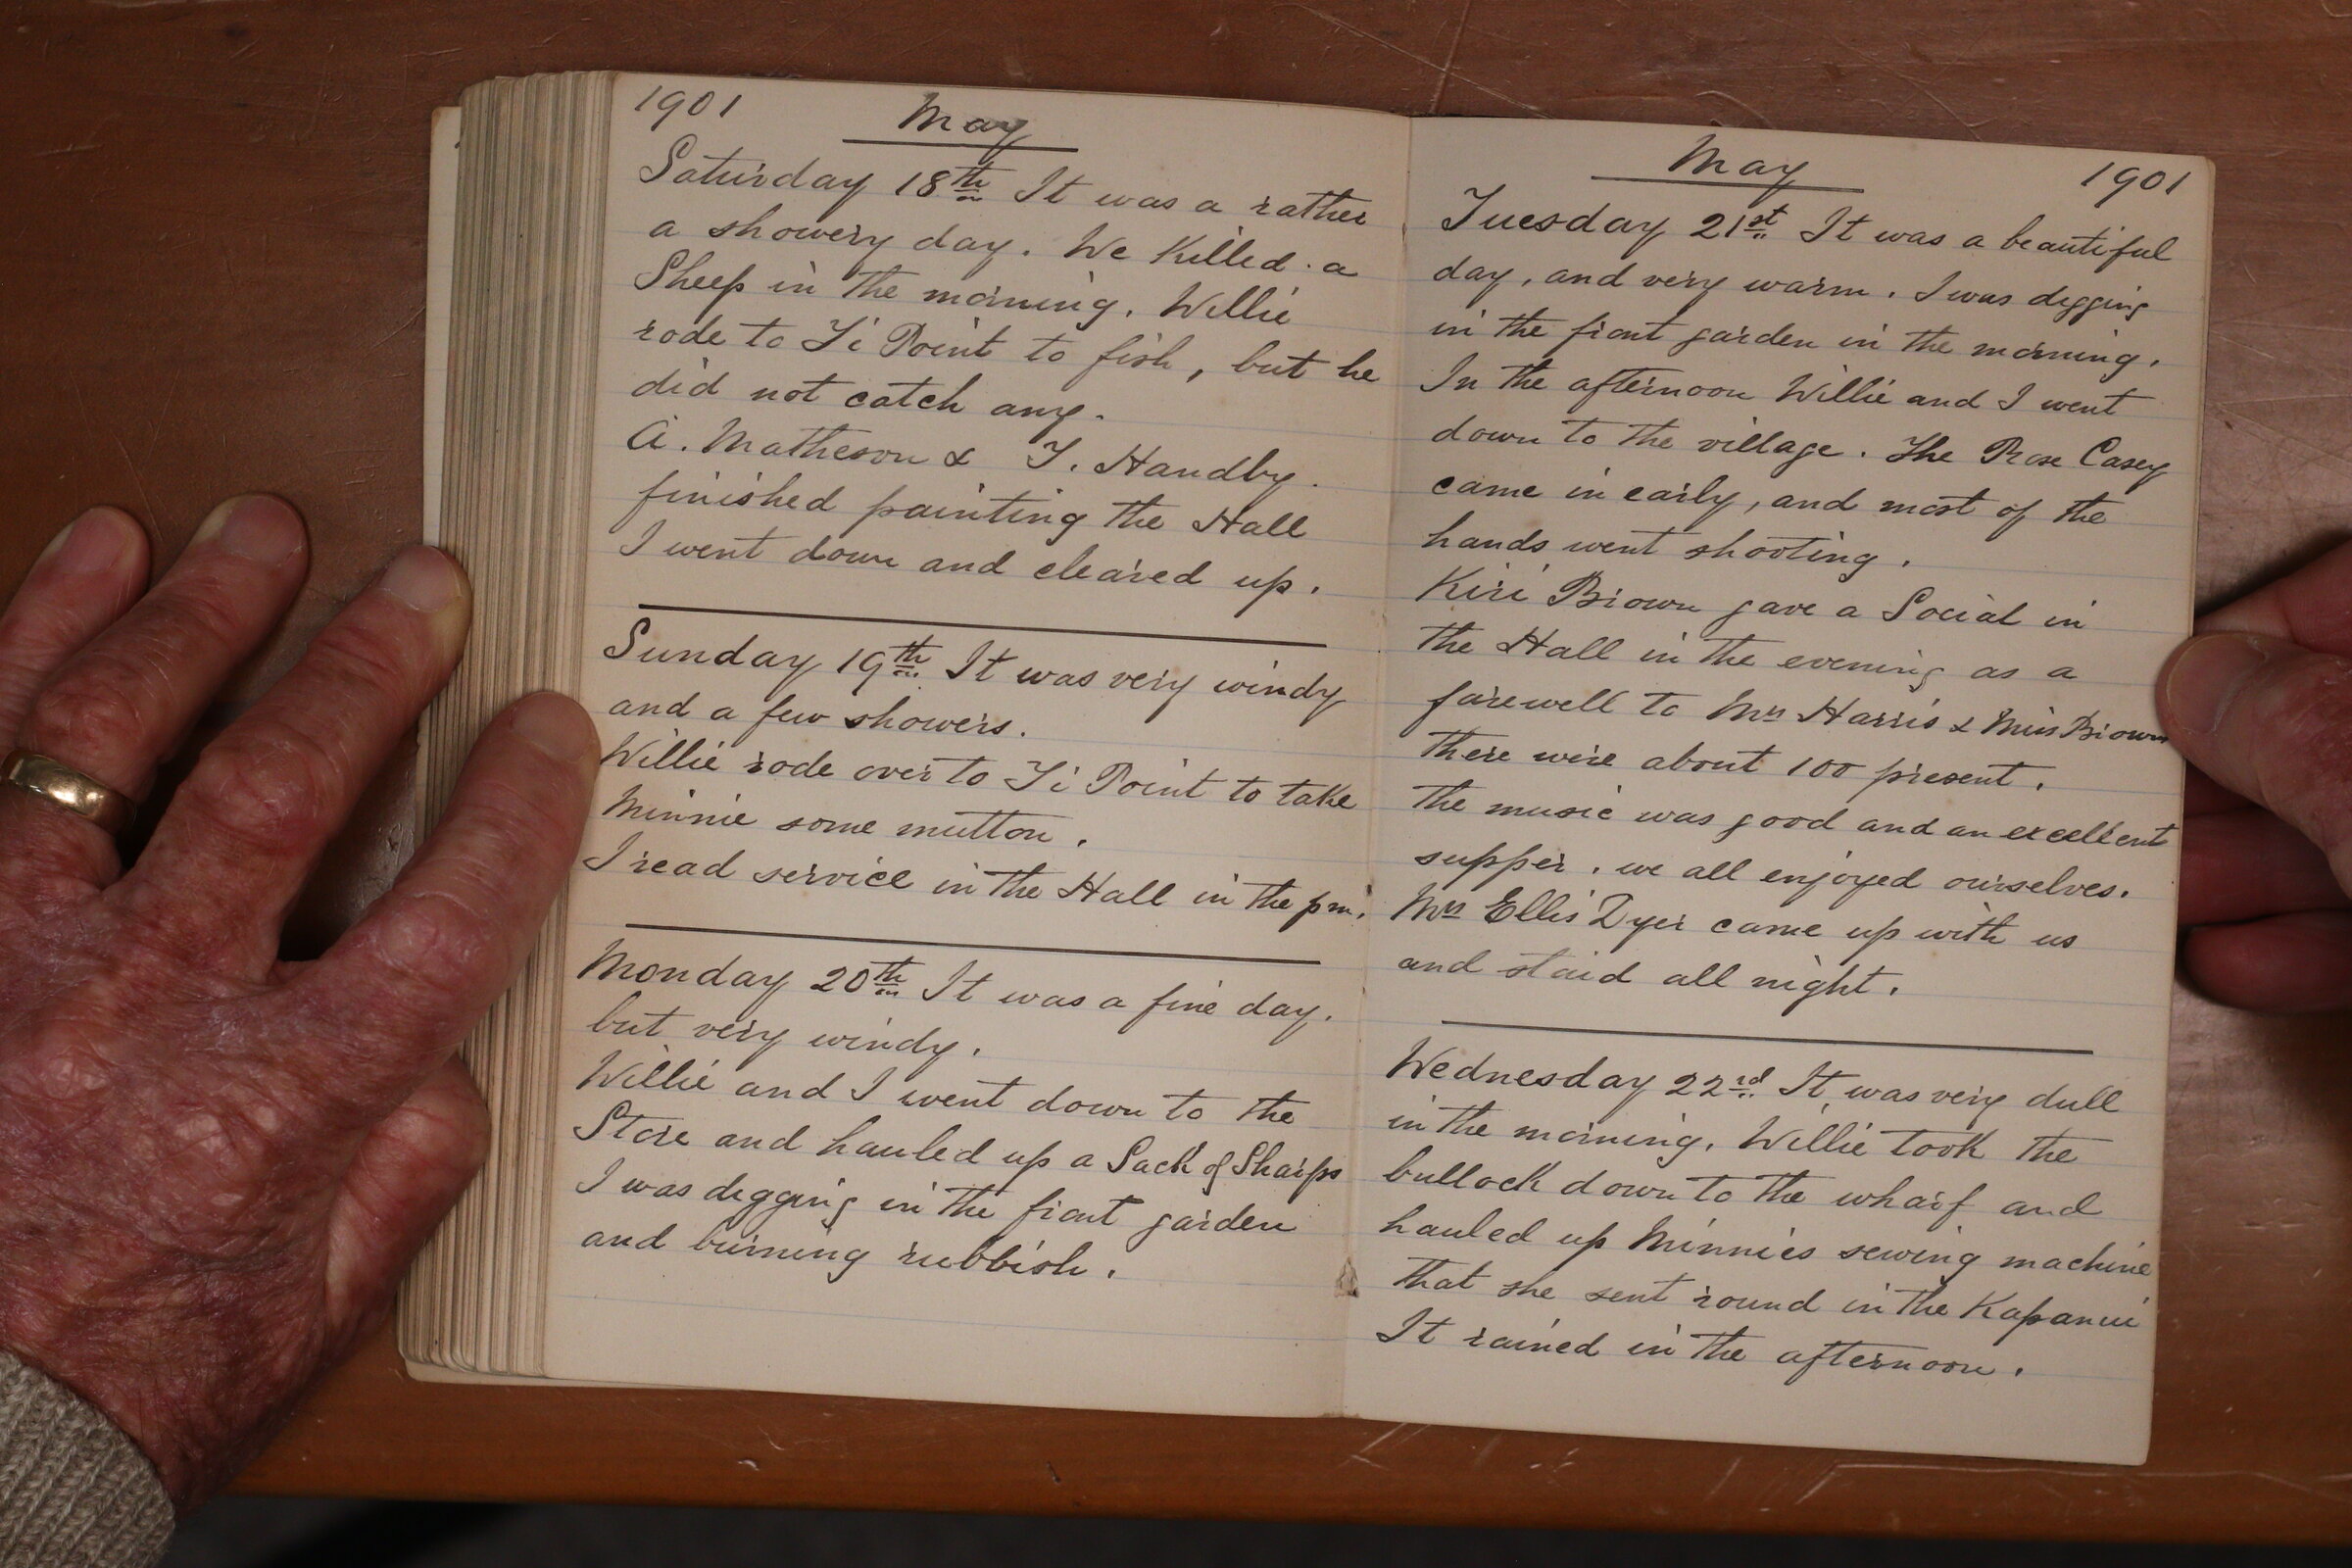 1901
May
Saturday 18th It was a rather
a showery day. We Killed a
Sheep in the morning. Willie
rode to Ti Point to fish, but he
did not catch any.
A. Matheson & T. Handby.
finished painting the Hall
I went down and cleared up.
Sunday 19th It was very windy
and a few showers.
Willie rode over to Ti Point to take
Minnie some mutton.
I read service in the Hall in the pm.
Monday 20th It was a fine day.
but very windy.
Willie and I went down to the
Store and hauled up a Sack of Sharps
I was digging in the front garden
and burning rubbish.
May
1901
Tuesday 21st It was a beautiful
day, and very warm. I was digging
in the front garden in the morning.
In the afternoon Willie and I went
down to the village. The Rose Casey
came in early, and most of the
hands went shooting.
Kiri Brown gave a Social in
the Hall in the evening as a
farewell to Mrs Harris & Miss Brown
there were about 100 present.
the music was good and an excellent
supper. we all enjoyed ourselves.
Mrs Ellis Dyer came up with us
and staid all night.
Wednesday 22rd It was very dull
in the morning. Willie took the
bullock down to the wharf and
hauled up Minnies sewing machine
that she sent round in the Kapanui
It rained in the afternoon.